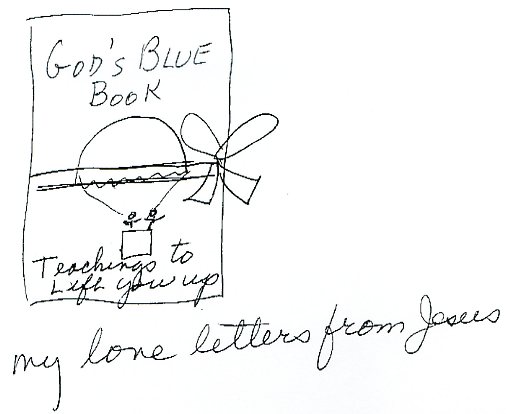 God's Blue
Book
Teachings to
Lift you up
my love letters from Jesus